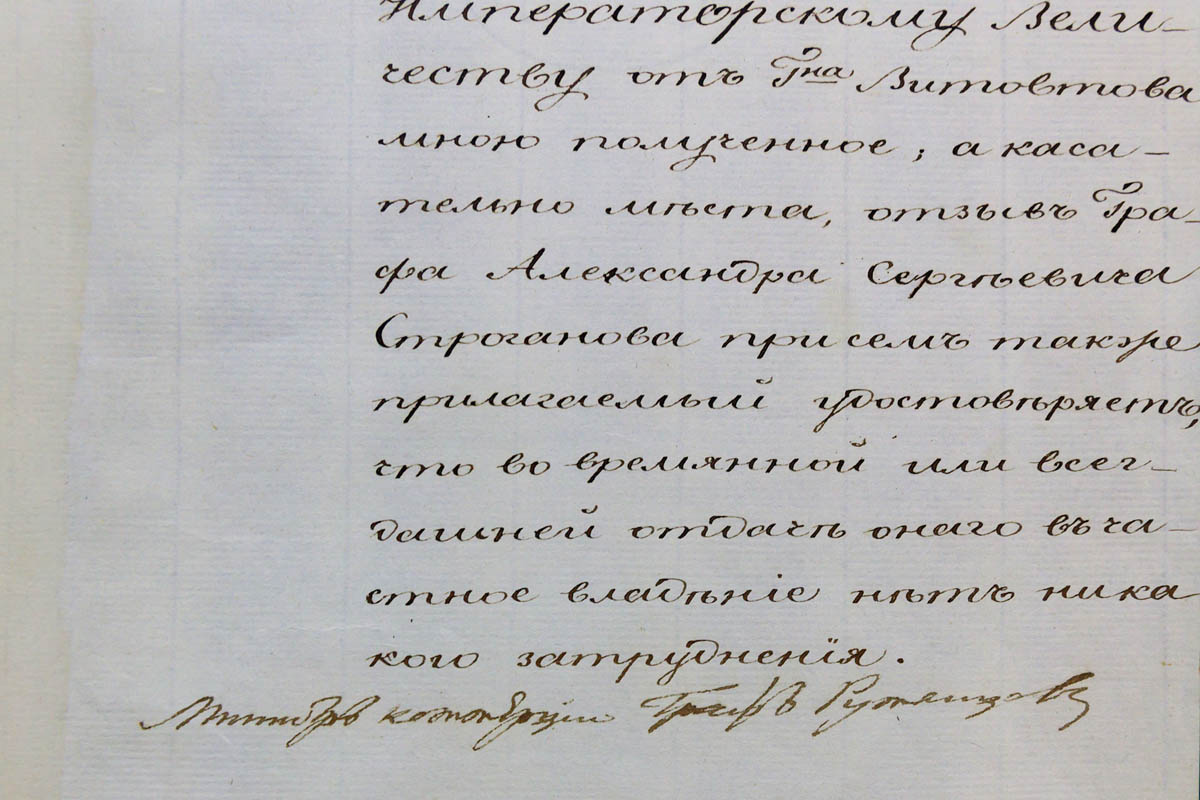 Императорскому Вели-
честву отъ Гна Витовтова
мною полученное; а каса-
тельно мѣста, отзывъ Гра-
фа Александра Сергѣевича
Строганова при семъ также
прилагаемый удостовѣряетъ,
что во времянной или всег-
дашней отдачѣ онаго въ ча-
стное владѣніе нѣтъ ника
кого затрудненія.
Министръ коммерціи Графъ Румянцовъ